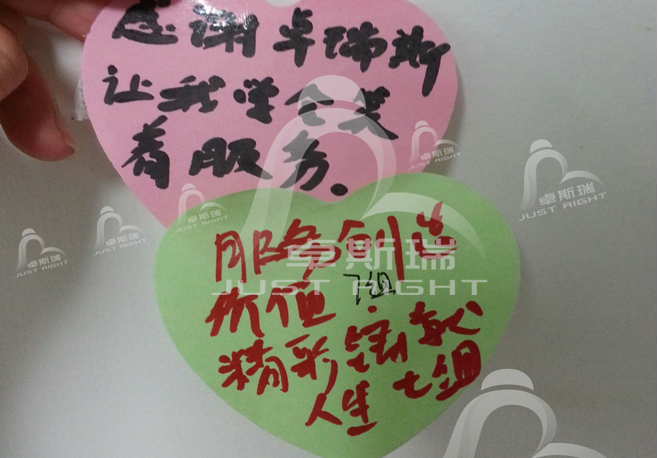 感谢卓瑞斯
让我学会笑
着服务.
服务创造
价值 7组
精彩
人生 七组
卓斯瑞
JUST RIGHT
卓斯瑞
JUST RIGHT
卓斯瑞
JUST RIGHT
卓斯瑞
JUST RIGHT
卓斯瑞
JUST RIGHT
卓斯瑞
JUST RIGHT